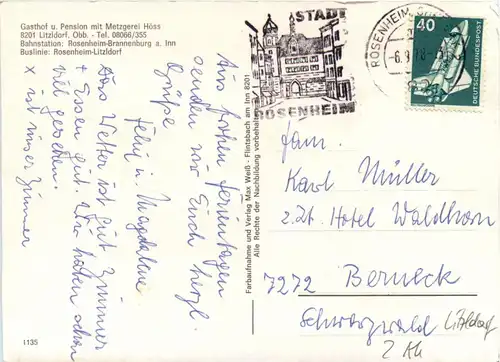 Gasthof u. Pension mit Metzgerei Höss
8201 Litzldorf, Obb. - Tel. 08066/355
Bahnstation: Rosenheim-Brannenburg a. Inn
Buslinie: Rosenheim-Litzldorf
Aus frohen Ferientagen
senden wir Euch herzl.
Grüße
Felix u. Magdalena
Das Wetter ist gut Zimmer
+ Essen gut. Wir haben schon
viel gesehen.
x ist unser Zimmer
1135
Farbaufnahme und Verlag Max Weiß - Flintsbach am Inn 8201
Alle Rechte der Nachbildung vorbehalten
STADT
ROSENHEIM
ROSENHEIM
-6.9.78
40
DEUTSCHE BUNDESPOST
Fam.
Karl Müller
z. Zt. Hotel Waldhorn
7272 Berneck
Schwarzwald
Litzldorf